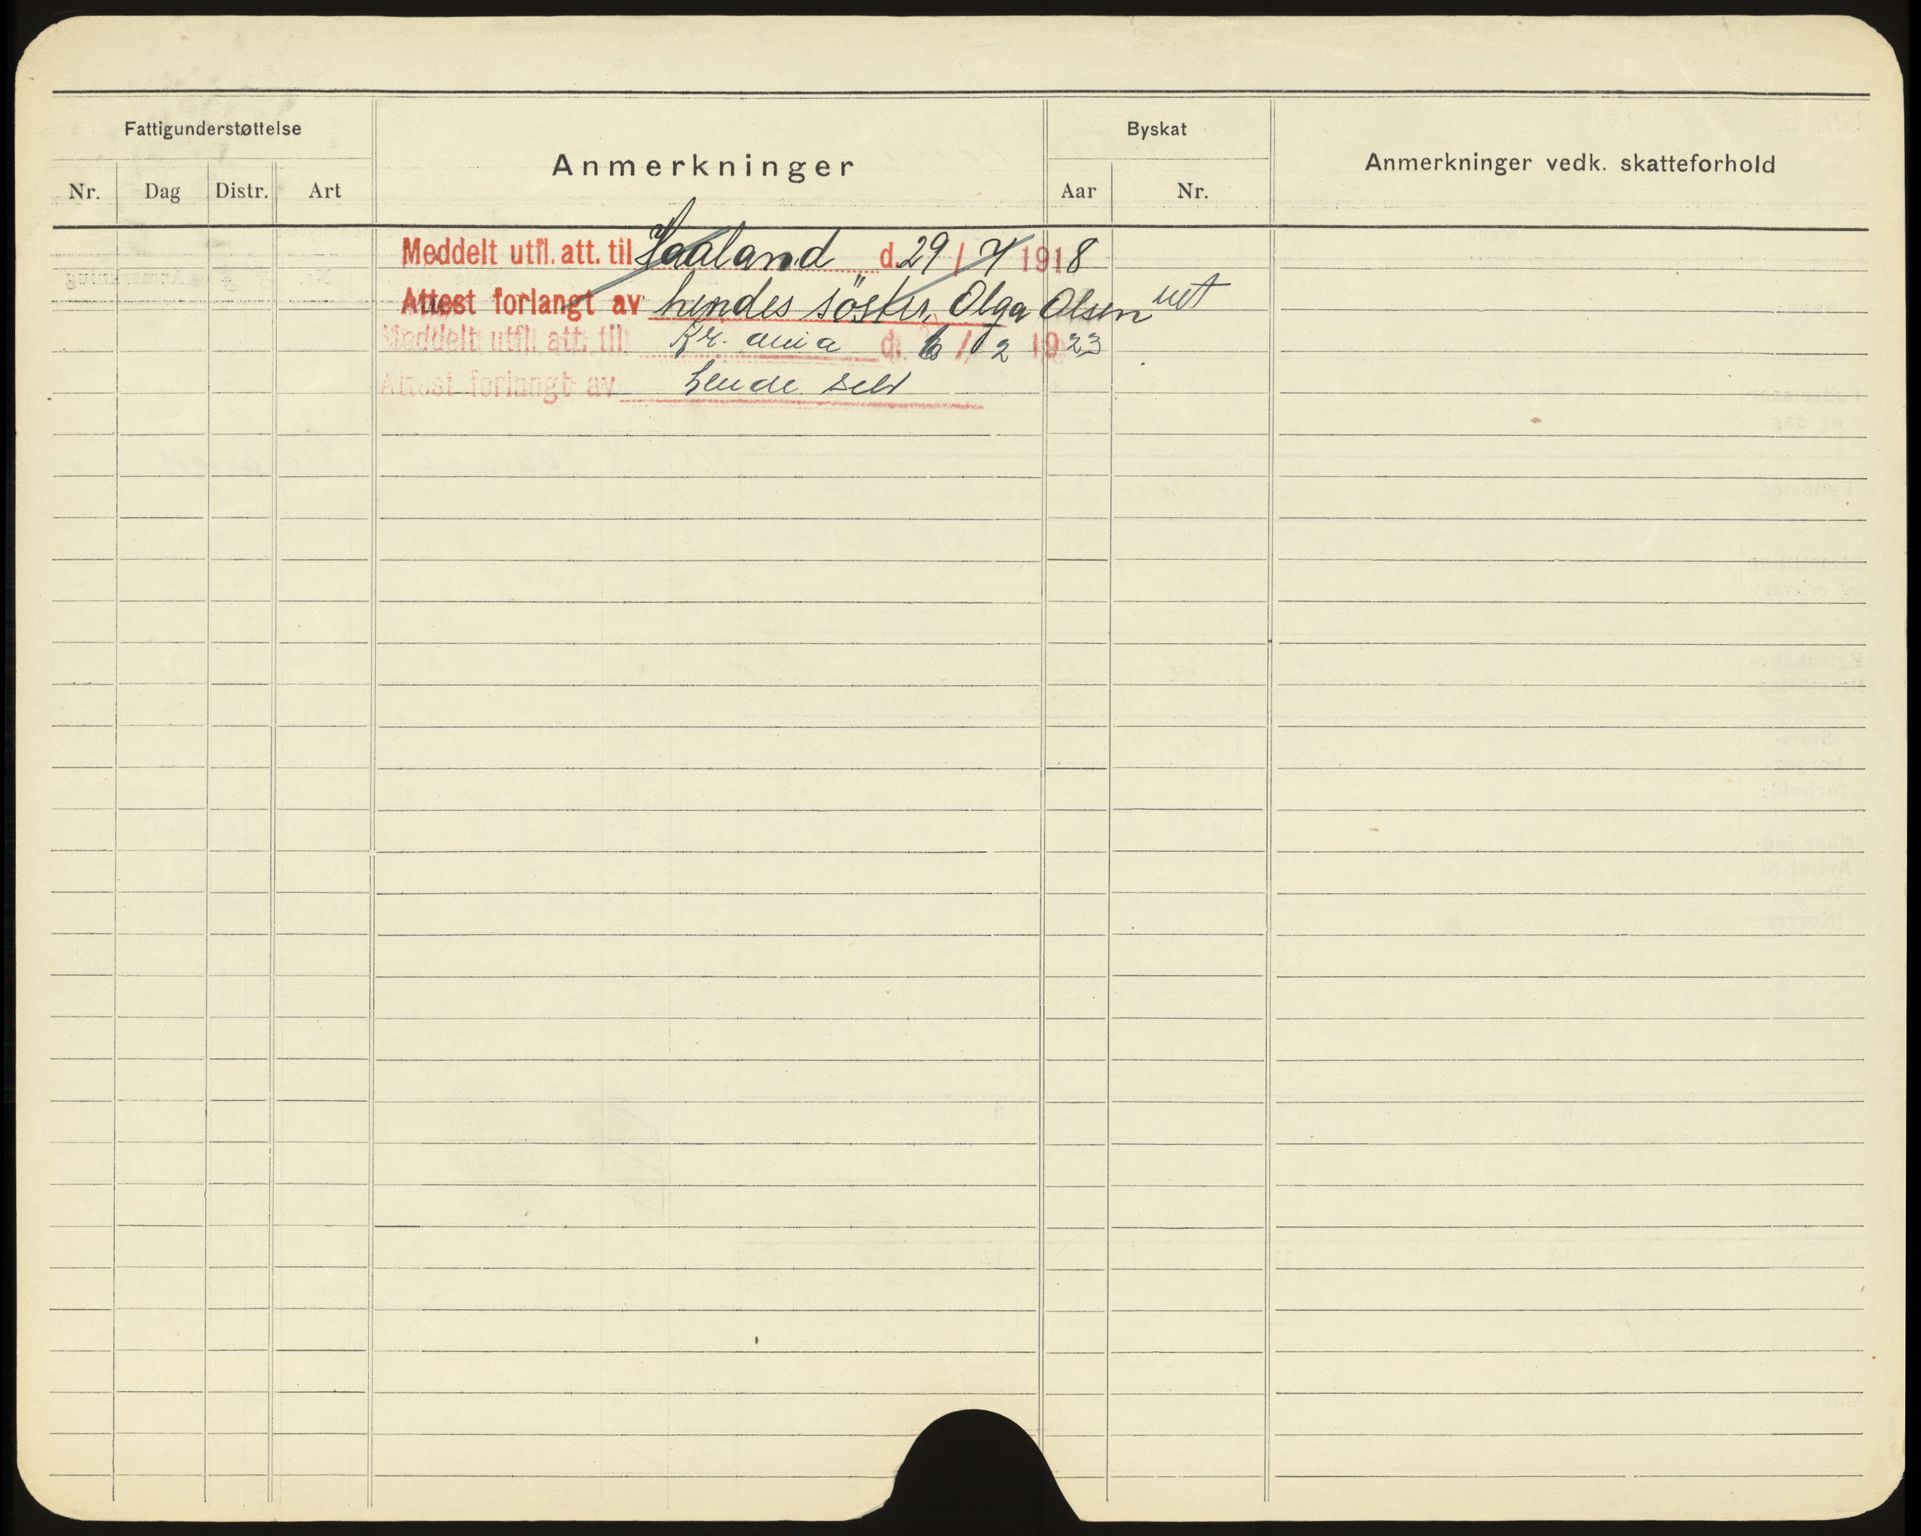 Fattigunderstøttelse
Anmerkninger
Byskat
Anmerkninger vedk. skatteforhold
Nr. Dag Distr. Art
Aar Nr.
Meddelt utfl. att. til Haaland d. 29 / 4 1918
Attest forlangt av hendes söster, Olga Olsen
Meddelt utfl. att. til Kr. ania d. 6 / 2 1923
Attest forlangt av hende selv